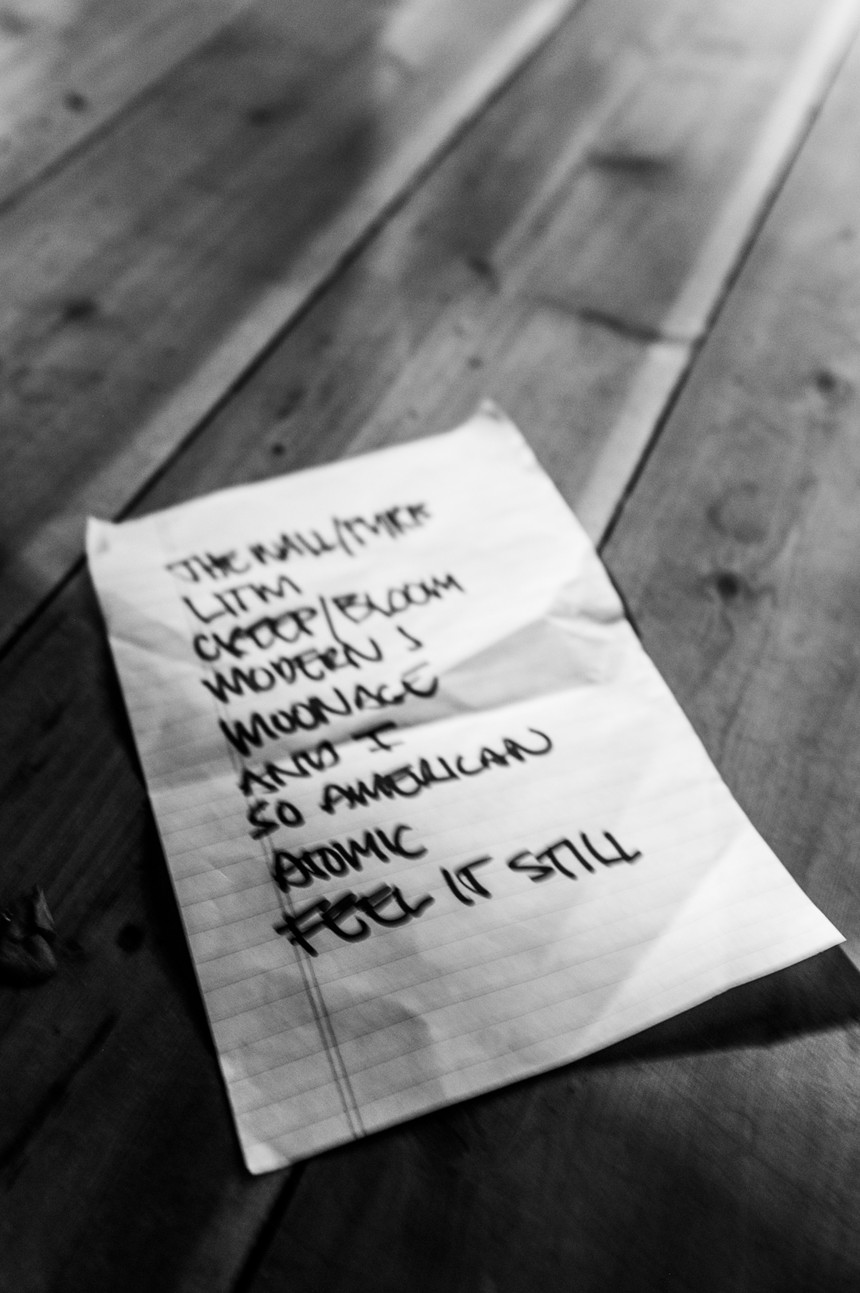 THE WALL/PURPLE
LITM
CREEP/BLOOM
MODERN J
MOONAGE
AND I
SO AMERICAN
ATOMIC
FEEL IT STILL